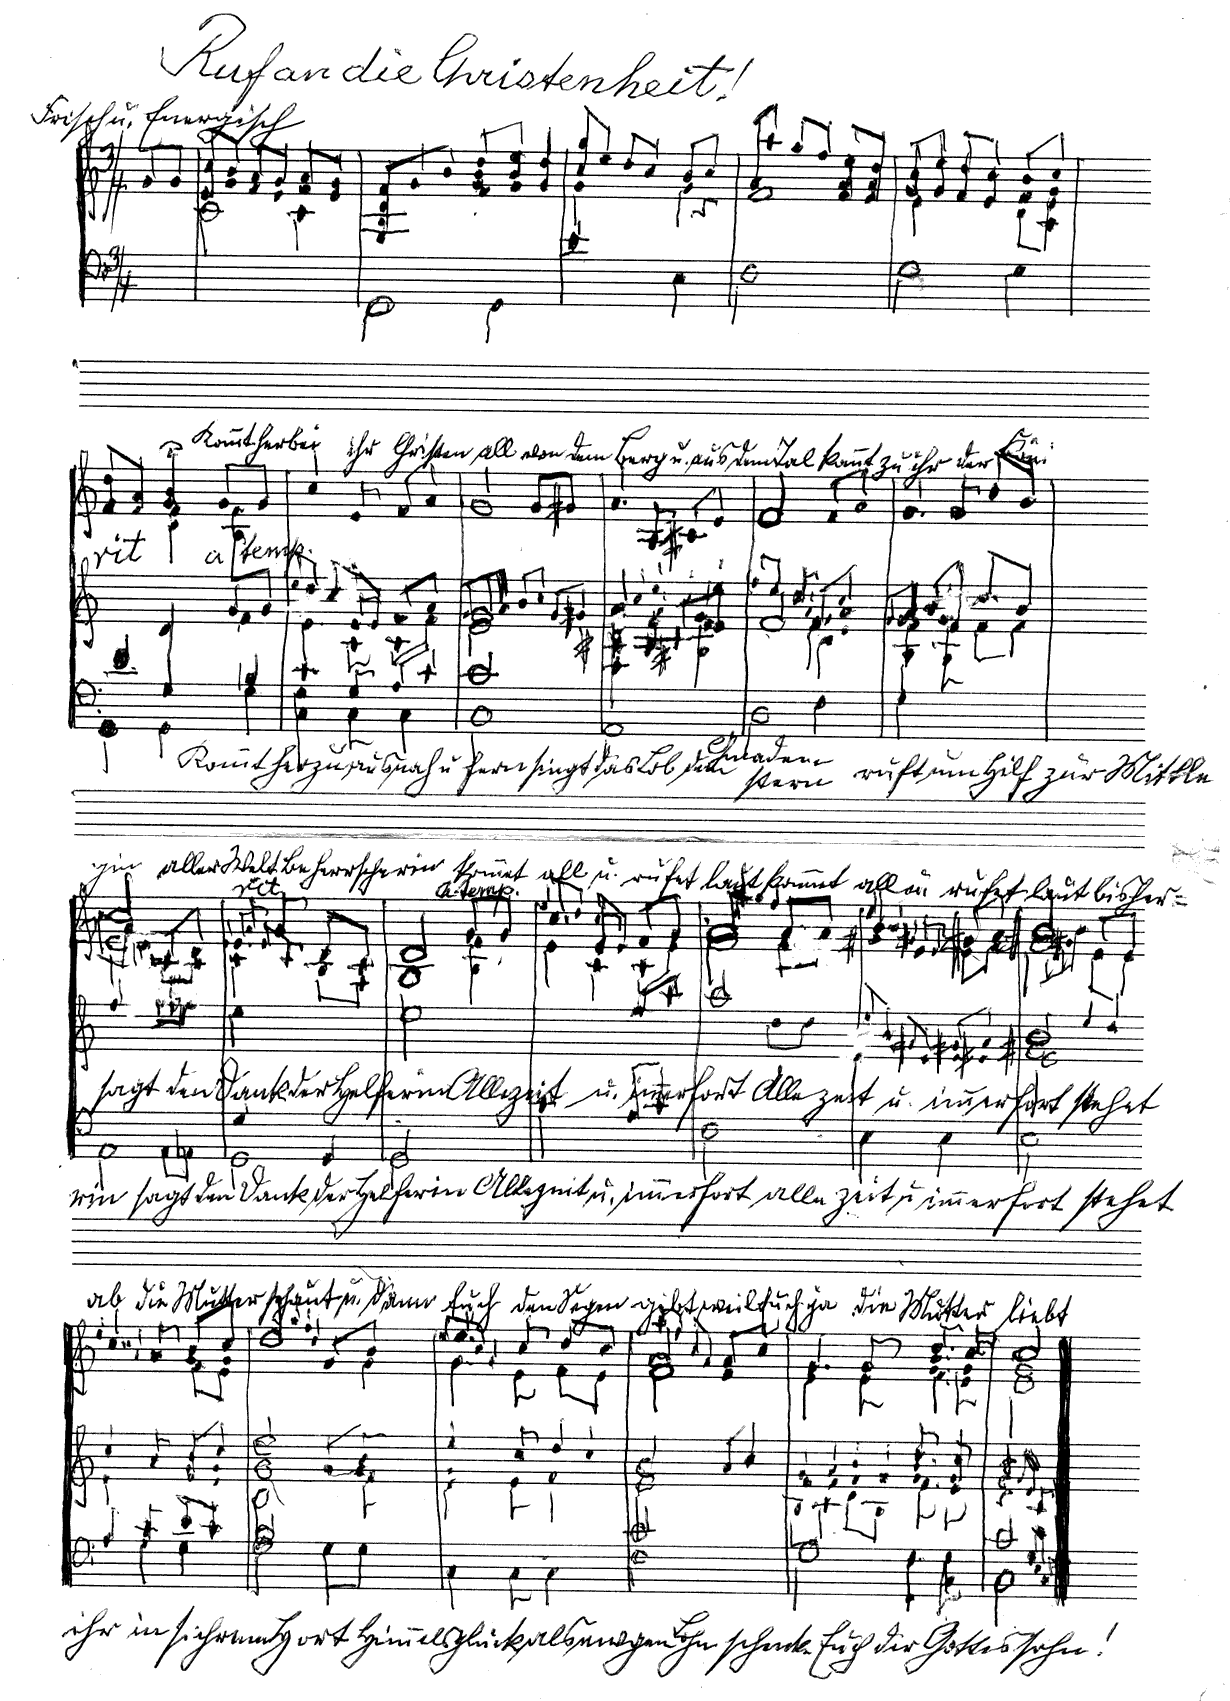 Ruf an die Christenheit!
Frisch u. Energisch
3/4
3/4
Kom̄t herbei ihr Christen all von dem Berg u. aus dem Tal kom̄t zu ihr der Köni
rit a temp.
Kom̄t herzu aus nah u fern singt das Lob dem Gnaden-
stern ruft um Hilf zur Mittle
gin aller Welt Beherrscherin kom̄et all u. rufet laut kom̄et all u. rufet laut bis her-
rit a. temp.
sagt den Dank der Helferin Alle zeit u. im̄erfort Alle zeit u. im̄erfort stehet
rin sagt den Dank der Helferin Alle zeit u. im̄erfort alle zeit u im̄erfort stehet
ab die Mutter schaut u. dann Euch den Segen gibt weil Euch ja die Mutter liebt
ihr in sichrem Hort Him̄elsglück als ewgen Lohn schenk Euch der Gottessohn!